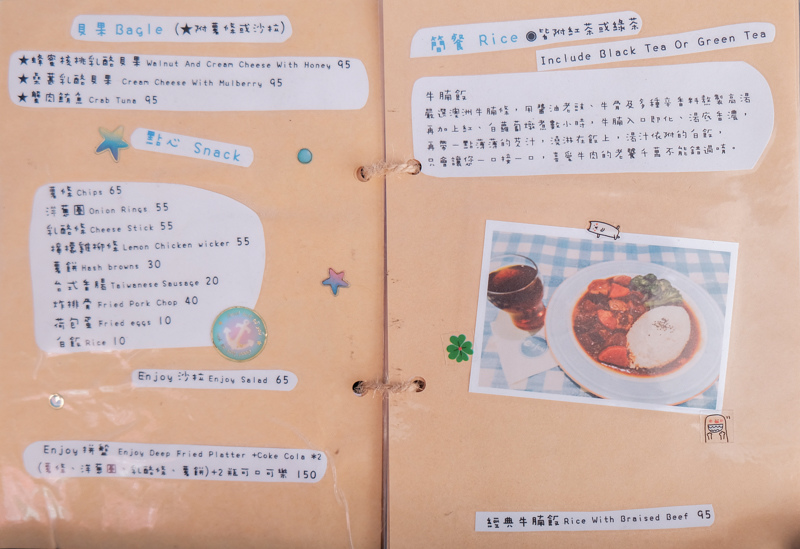 貝果 Bagle (★附薯條或沙拉)
★蜂蜜核桃乳酪貝果 Walnut And Cream Cheese With Honey 95
★桑葚乳酪貝果 Cream Cheese With Mulberry 95
★蟹肉鮪魚 Crab Tuna 95
點心 Snack
薯條 Chips 65
洋蔥圈 Onion Rings 55
乳酪條 Cheese Stick 55
檸檬雞柳條 Lemon Chicken wicker 55
薯餅 Hash browns 30
台式香腸 Taiwanese Sausage 20
炸排骨 Fried Pork Chop 40
荷包蛋 Fried eggs 10
白飯 Rice 10
Enjoy 沙拉 Enjoy Salad 65
Enjoy 拼盤 Enjoy Deep Fried Platter +Coke Cola *2
(薯條、洋蔥圈、乳酪條、薯餅)+2瓶可口可樂 150
簡餐 Rice ●皆附紅茶或綠茶
Include Black Tea Or Green Tea
牛腩飯
嚴選澳洲牛腩條，用醬油老頭、牛骨及多種辛香料熬製高湯
再加上紅、白蘿蔔燉煮數小時，牛腩入口即化、湯底香濃，
再帶一點薄薄的芡汁，澆淋在飯上，湯汁依附的白飯，
只會讓您一口接一口，喜愛牛肉的老饕千萬不能錯過唷。
經典牛腩飯 Rice With Braised Beef 95